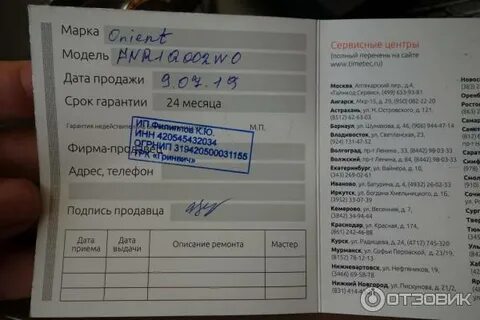 Марка Orient
Модель FNR1Q002W0
Дата продажи 9.07.19
Срок гарантии 24 месяца
Гарантия недействительна М.П.
ИП Филиппов К.Ю.
ИНН 420545432034
ОГРНИП 319420500031155
ТРК «Гринвич»
Фирма-продавец
Адрес, телефон
Подпись продавца
Дата приема
Дата выдачи
Описание ремонта
Мастер
Сервисные центры
(полный перечень на сайте
www.timetec.ru)
Москва, Аптекарский пер., д.4,
«Гайнкод Сервис», (499) 633-93-81
Ангарск, Мкр-15, д. 29, (950) 082-22-20
Астрахань, ул. Н. Островского,
Барнаул, ул. Цымлянская, д. 46,
Владивосток, ул. Светланская,
Волгоград, пр-т Ленина,
Волжский, пр-т Ленина,
Екатеринбург, ул. Вайнера, д. 10,
(343) 269-02-61
Иваново, ул. Батурина, д. 4,
Иркутск, ул. Богдана Хмельницкого,
(3952) 33-07-39
Кемерово, ул. Весенняя, д. 7,
(3842) 34-94-44
Краснодар, ул. Красная, д. 174,
(861) 242-46-88
Курск, ул. Радищева, д. 24, (4712) 745-320
Мурманск, ул. Софьи Перовской, д. 23/19,
(8152) 78-12-13
Нижневартовск, ул. Нефтяников, д. 19,
Нижний Новгород, ул. Пискунова, д. 21/2,
(831) 414-
ОТЗОВИК